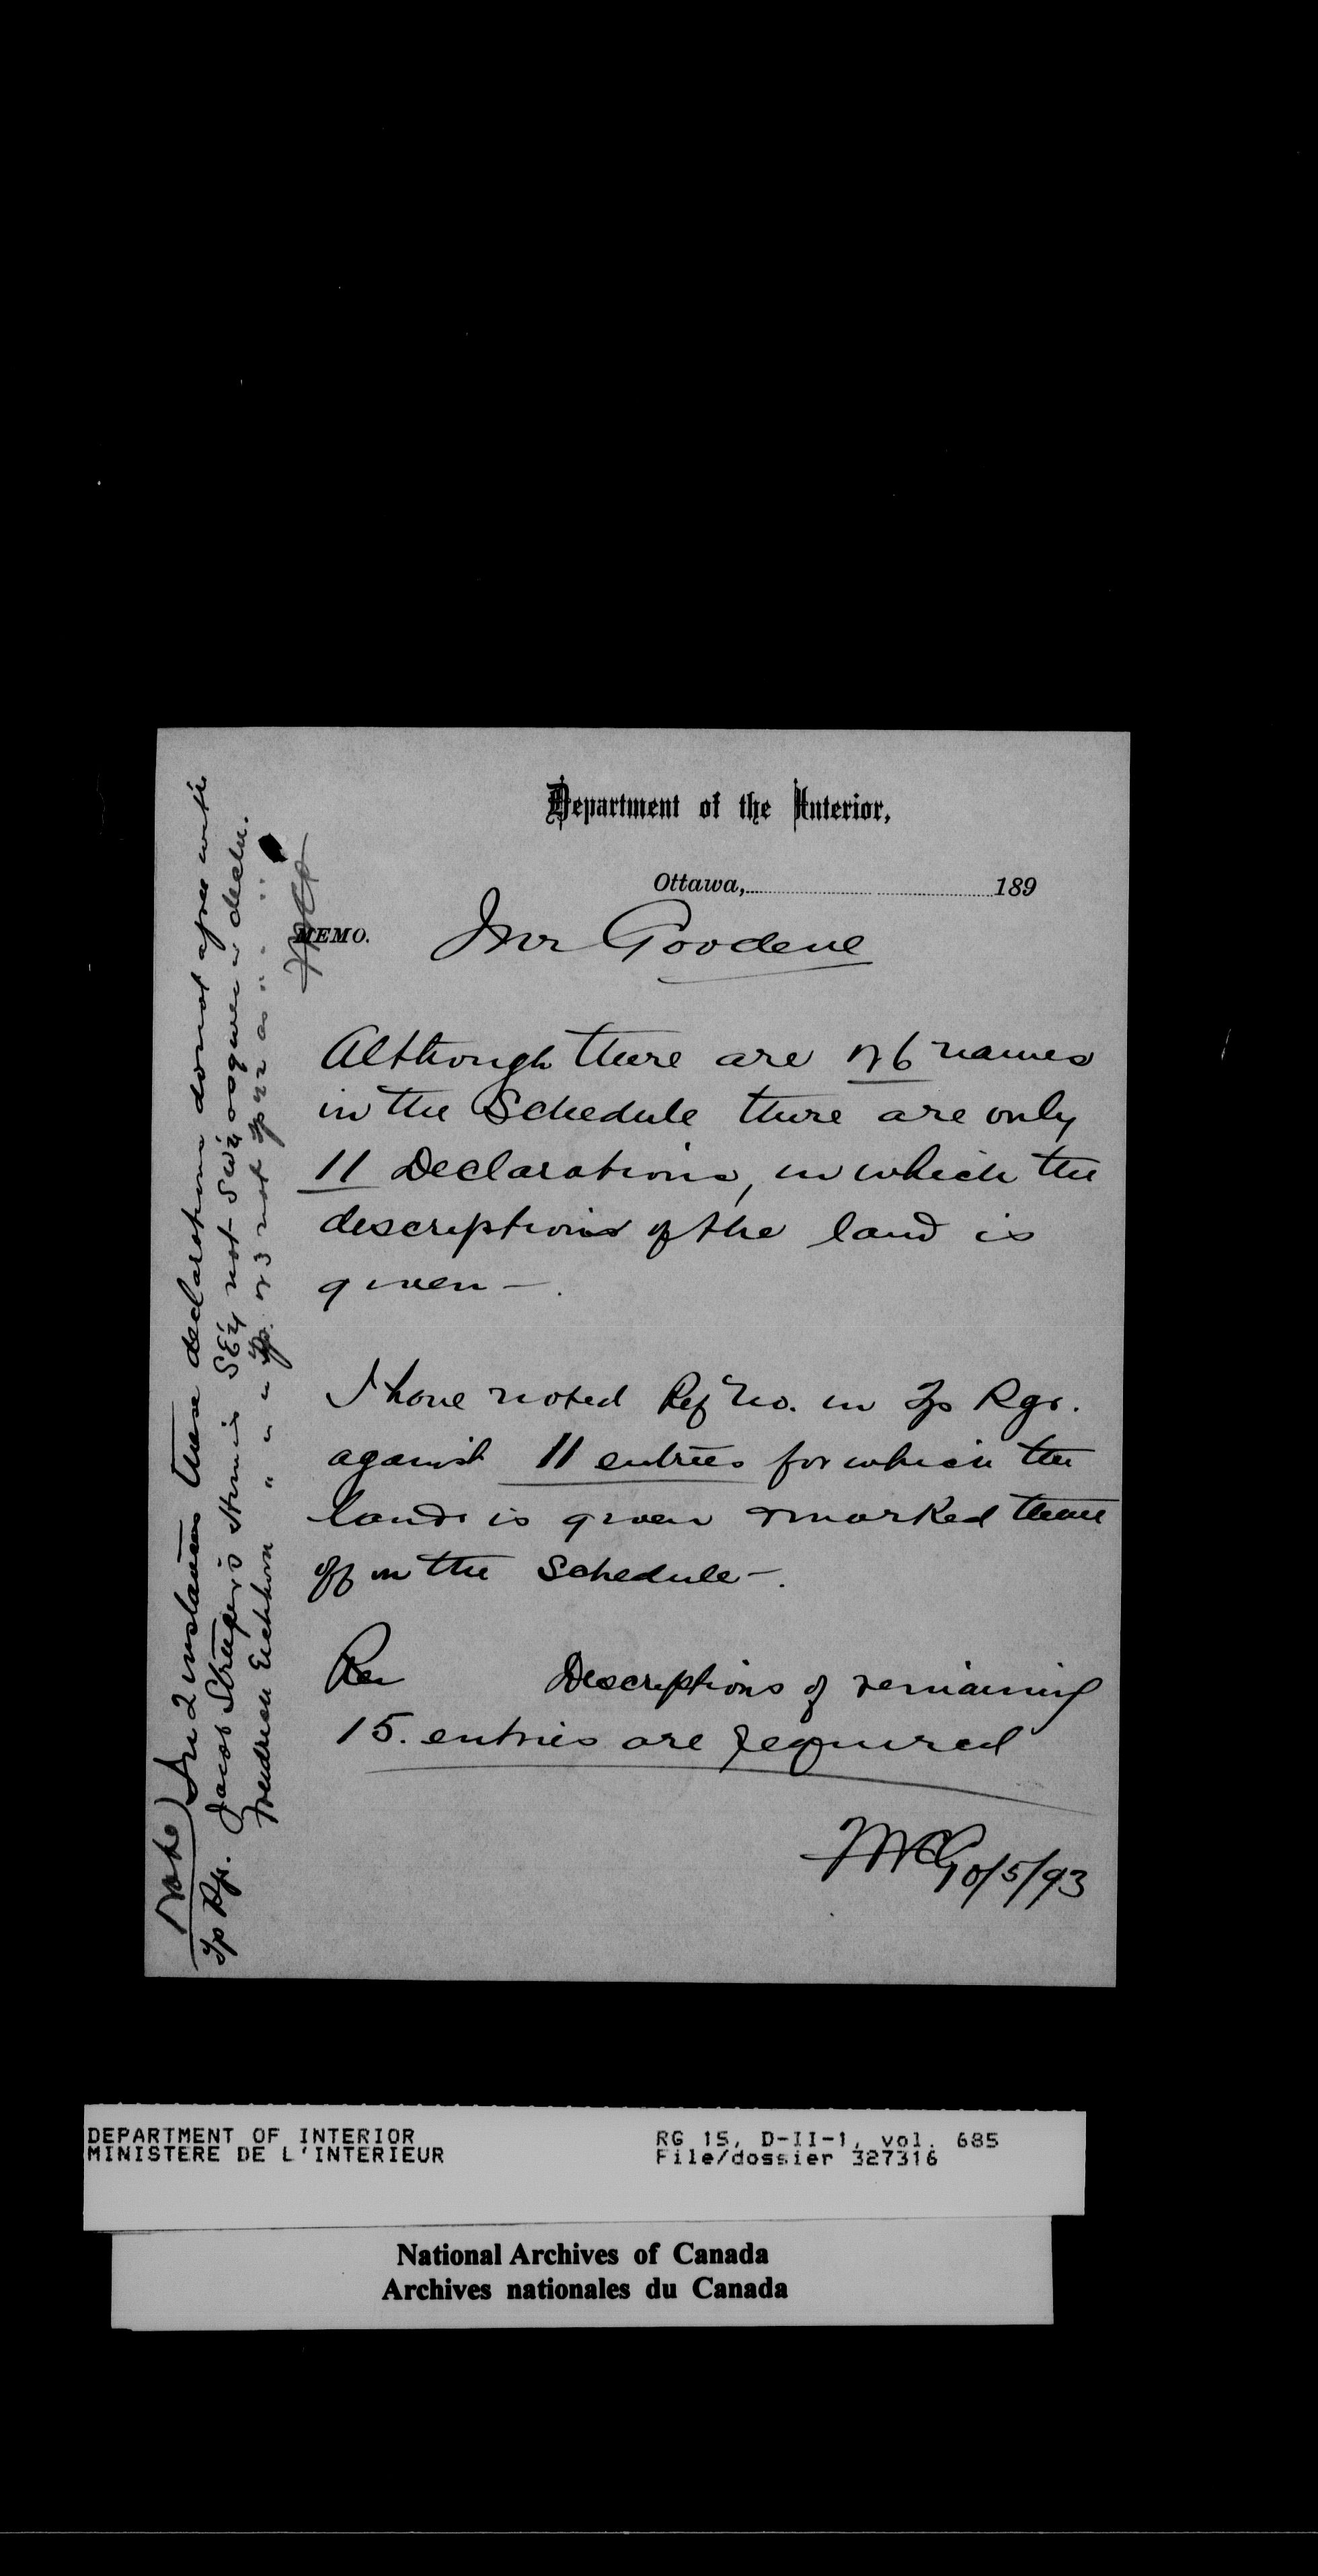 Department of the Interior,
Ottawa, 189
MEMO.
Mr Goodeve
Although there are 26 names
in the Schedule there are only
11 Declarations, in which the
descriptions of the land is
given —.
I have noted Ref No. in Tp Rgr.
against 11 entries for which the
lands is given & marked them
off in the Schedule —.
Descriptions of remaining
15. entries are required
10/5/93
Note) In 2 instances these declarations do not agree with
Tp Rgr. Jacob
not SW¼ as given in decln.
Eichhorn " " " Tp. 23 not Tp 22 as " " "
DEPARTMENT OF INTERIOR
MINISTERE DE L'INTERIEUR
RG 15, D-II-1, vol. 685
File/dossier 327316
National Archives of Canada
Archives nationales du Canada